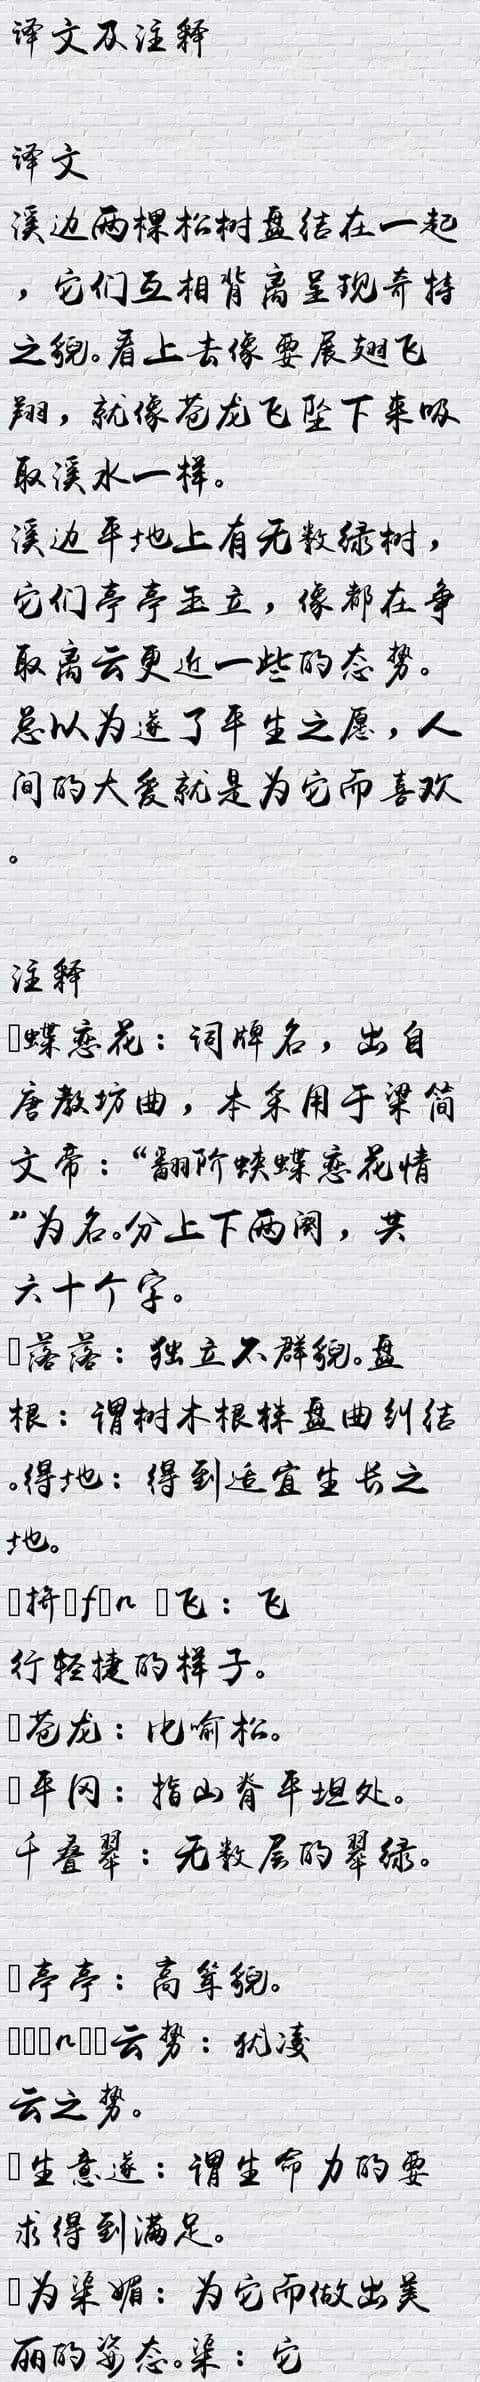 译文及注释
译文
溪边两棵松树盘结在一起
，它们互相背离呈现奇特
之貌。看上去像要展翅飞
翔，就像苍龙飞坠下来吸
取溪水一样。
溪边平地上有无数绿树，
它们亭亭玉立，像都在争
取离云更近一些的态势。
总以为遂了平生之愿，人
间的大爱就是为它而喜欢
。
注释
蝶恋花：词牌名，出自
唐教坊曲，本采用于梁简
文帝：“翻阶蛱蝶恋花情
”为名。分上下两阕，共
六十个字。
落落：独立不群貌。盘
根：谓树木根株盘曲纠结
。得地：得到适宜生长之
地。
拚□f□n □飞：飞
行轻捷的样子。
苍龙：比喻松。
平冈：指山脊平坦处。
千叠翠：无数层的翠绿。
亭亭：高耸貌。
□□□n□□云势：犹凌
云之势。
生意遂：谓生命力的要
求得到满足。
为渠媚：为它而做出美
丽的姿态。渠：它